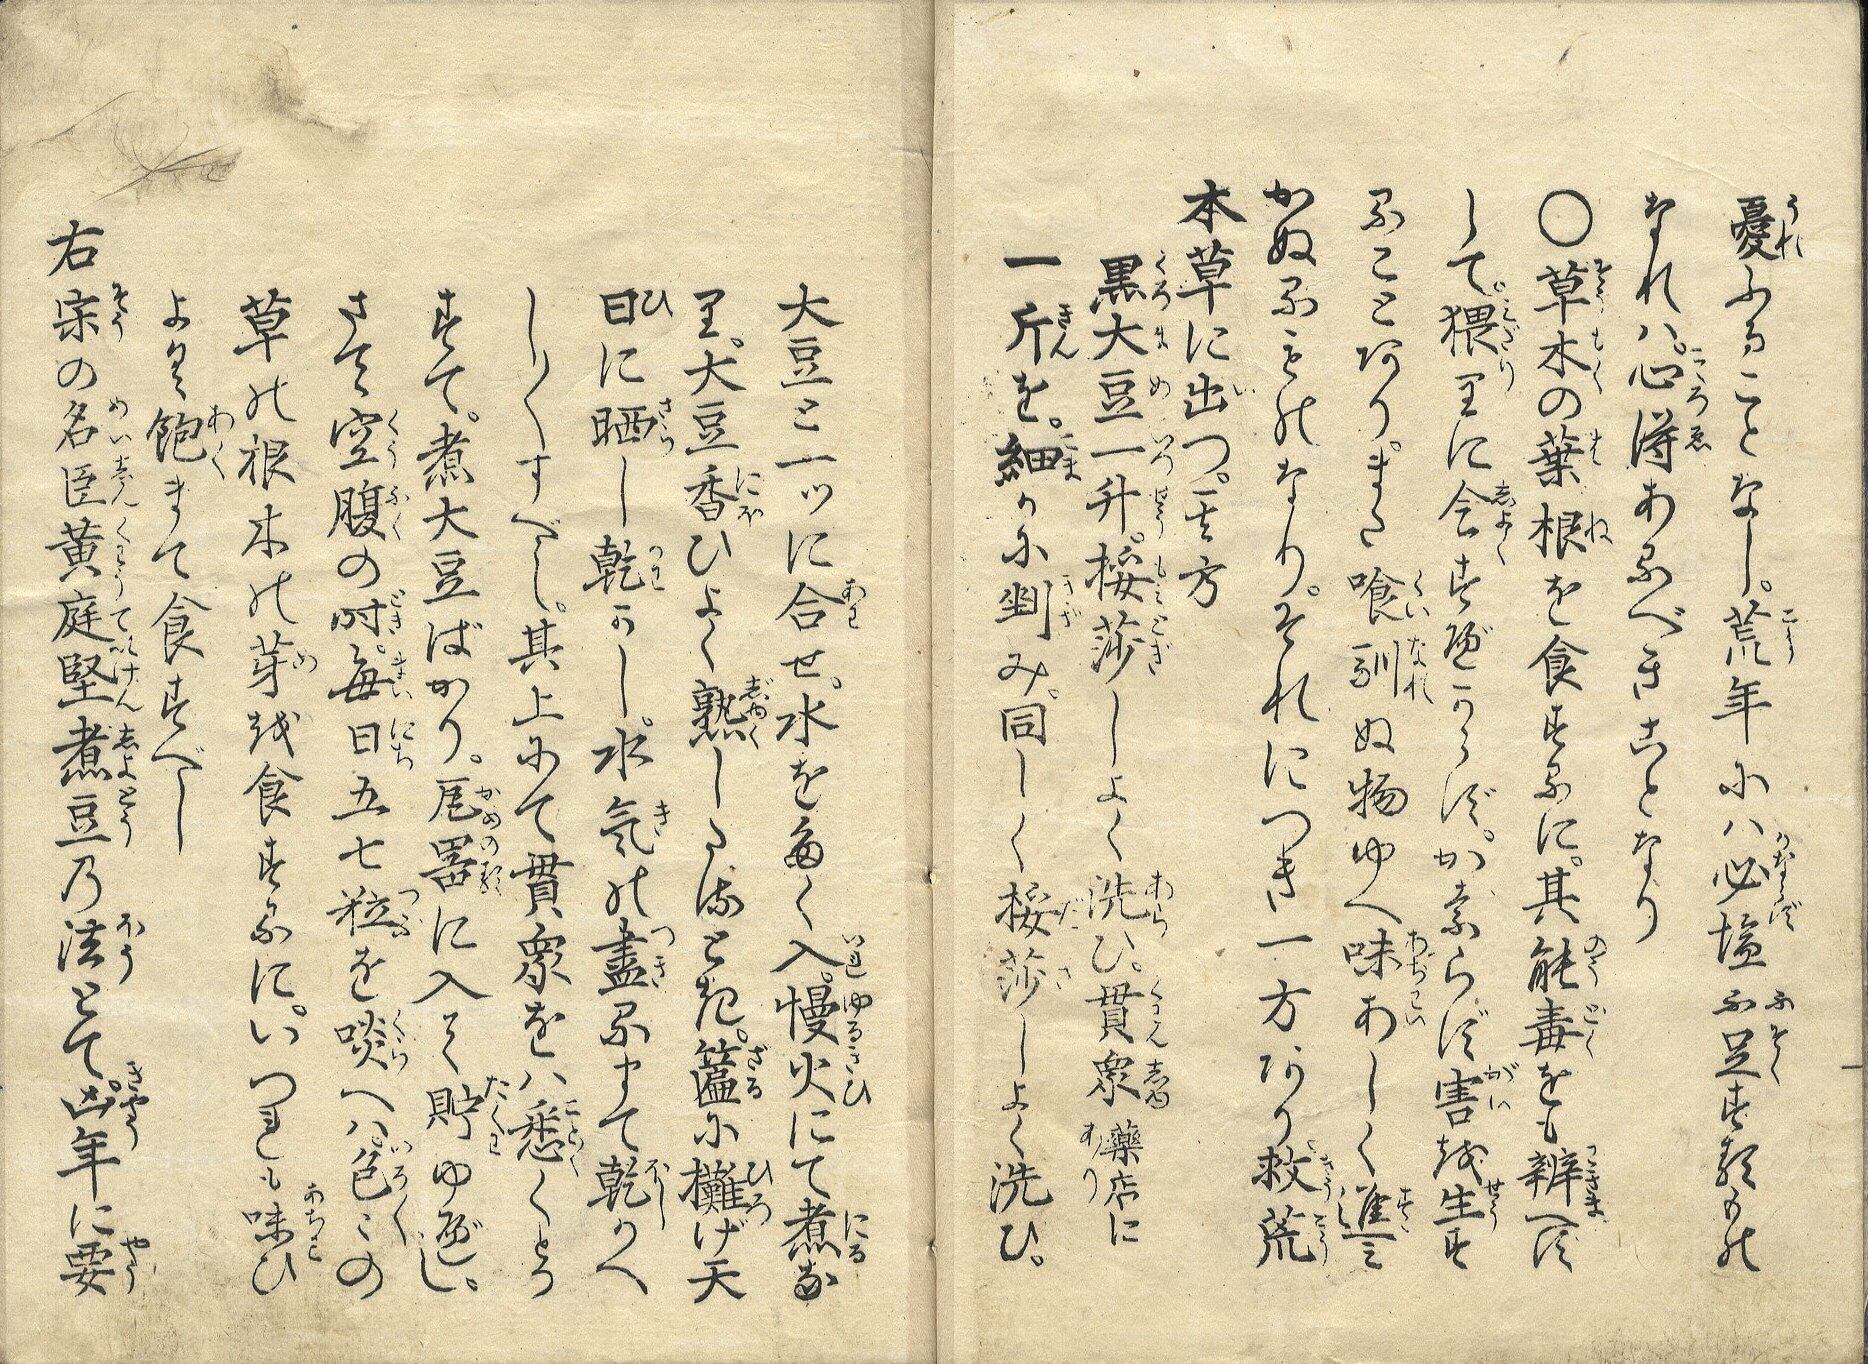 憂ふることなし。荒年にハ必塩不足する物の
なれハ。心得あるべきことなり
○草木の葉根を食するに。其能毒をも辨へず
して。猥りに食すべからず。かならず害を生す
ることあり。また喰馴ぬ物ゆへ味あしく進ミ
かぬるものなり。それにつき一方あり救荒
本草に出つ。其方
黒大豆一升。挼莎しよく洗ひ。貫衆薬店にあり
一斤を。細かに剉み。同しく挼莎しよく洗ひ。
大豆と一ツに合せ。水を多く入。慢火にて煮る
なり。大豆香ひよく熟したるとき。籃に攤げ天
日に晒し乾かし。水気の盡るまて乾かへ
しゝすべし。其上にて貫衆をハ悉くとり
すて。煮大豆ばかり。瓦器に入て貯ゆべし。
さて空腹の時。毎日五七粒を啖へハ。色〱の
草の根木の芽を食するに。いつれも味ひ
よく飽まて食すべし
右宋の名臣黄庭堅煮豆乃法とて凶年に要